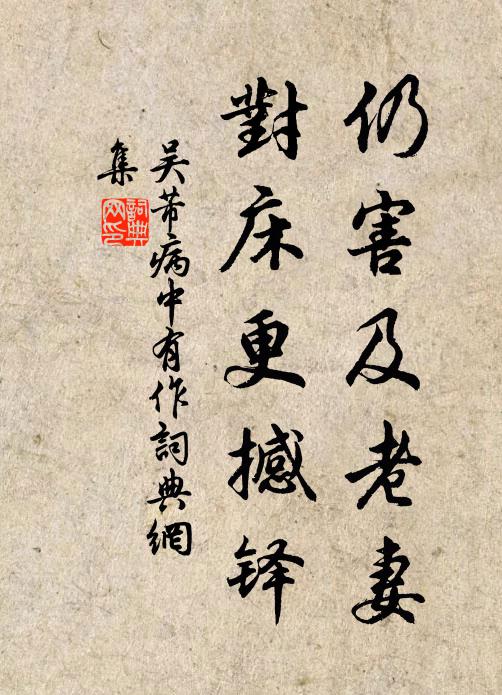 仍害及老妻
對床更撼铎
吴芾病中有作詞典網
集
詞典
网印